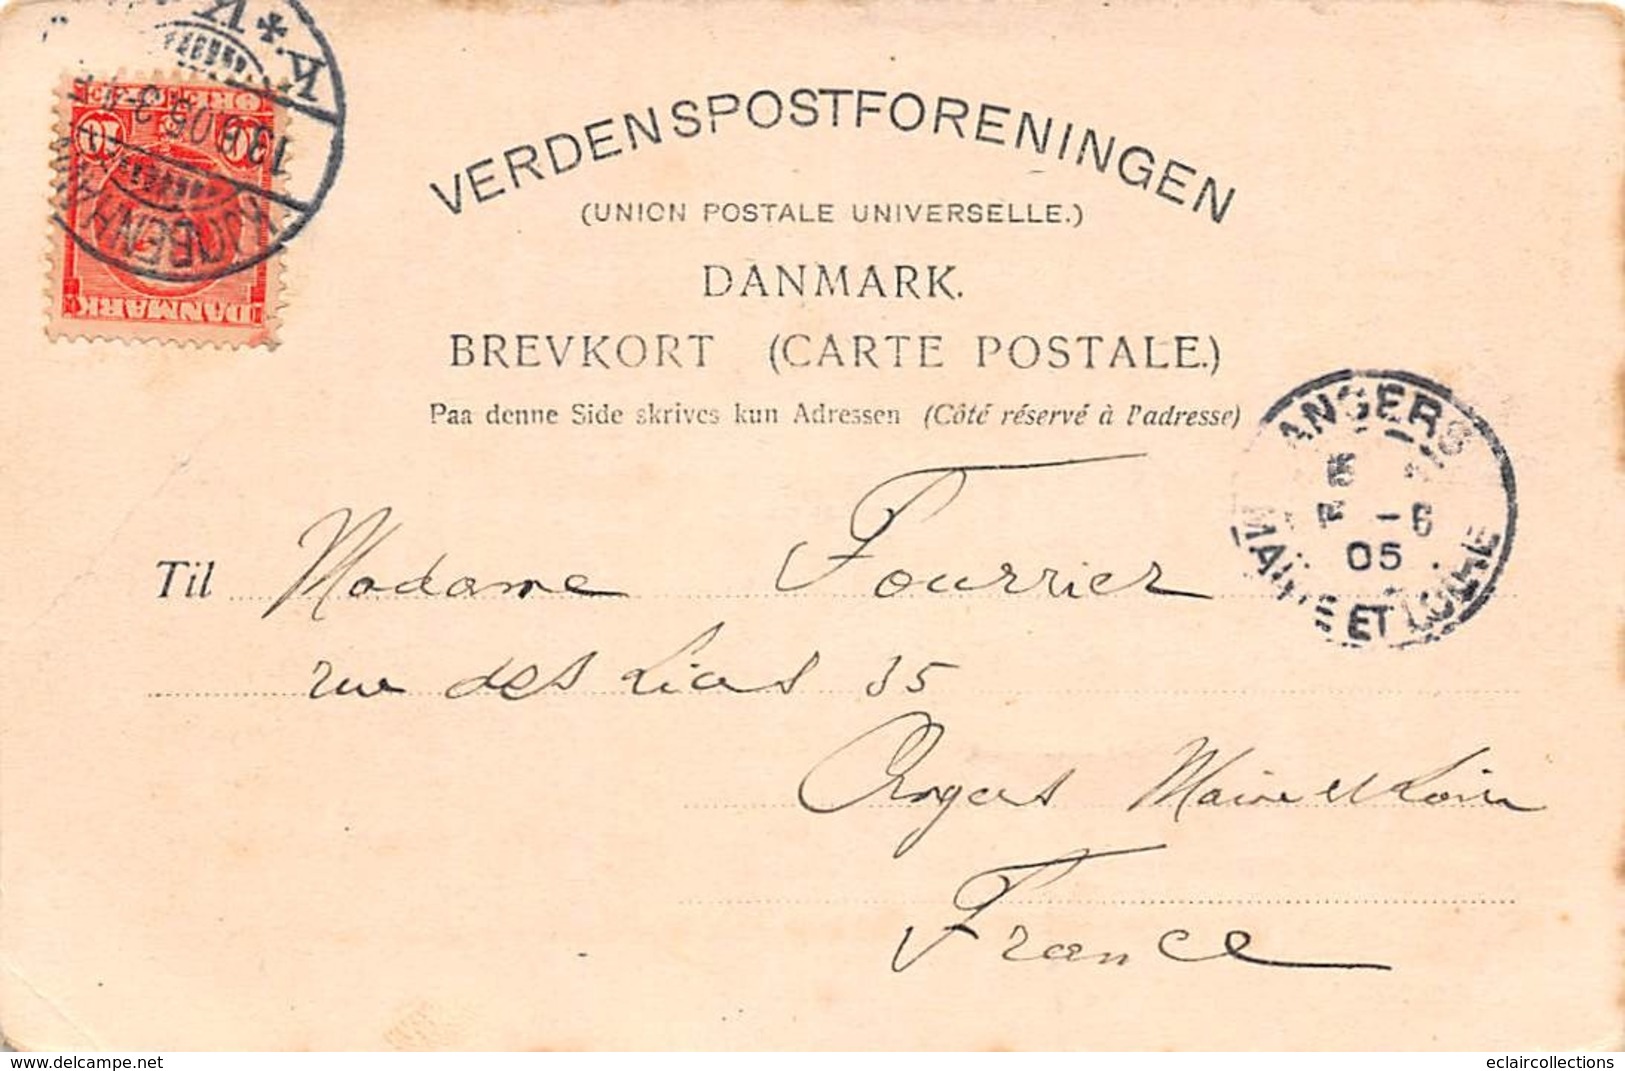 K.
KJØBENHAVN
13.6.05. 3-4
10 ØRE 10
DANMARK
VERDENSPOSTFORENINGEN
(UNION POSTALE UNIVERSELLE.)
DANMARK.
BREVKORT (CARTE POSTALE.)
Paa denne Side skrives kun Adressen (Côté réservé à l'adresse)
ANGERS
-6
05
MAINE ET LOIRE
Til Madame Fourrier
rue des Lices 35
Angers Maine et Loire
France
eclaircollections